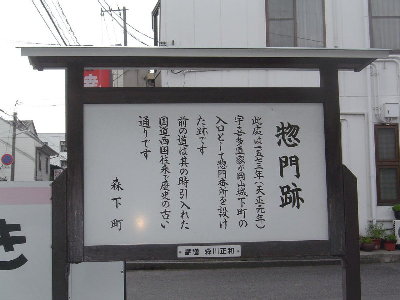 惣門跡
此処は一五七三年(天正元年)
宇喜多直家が岡山城下町の
入口として惣門番所を設け
た跡です
前の道は其の時引入れた
国道西国往来で歴史の古い
通りです
森下町